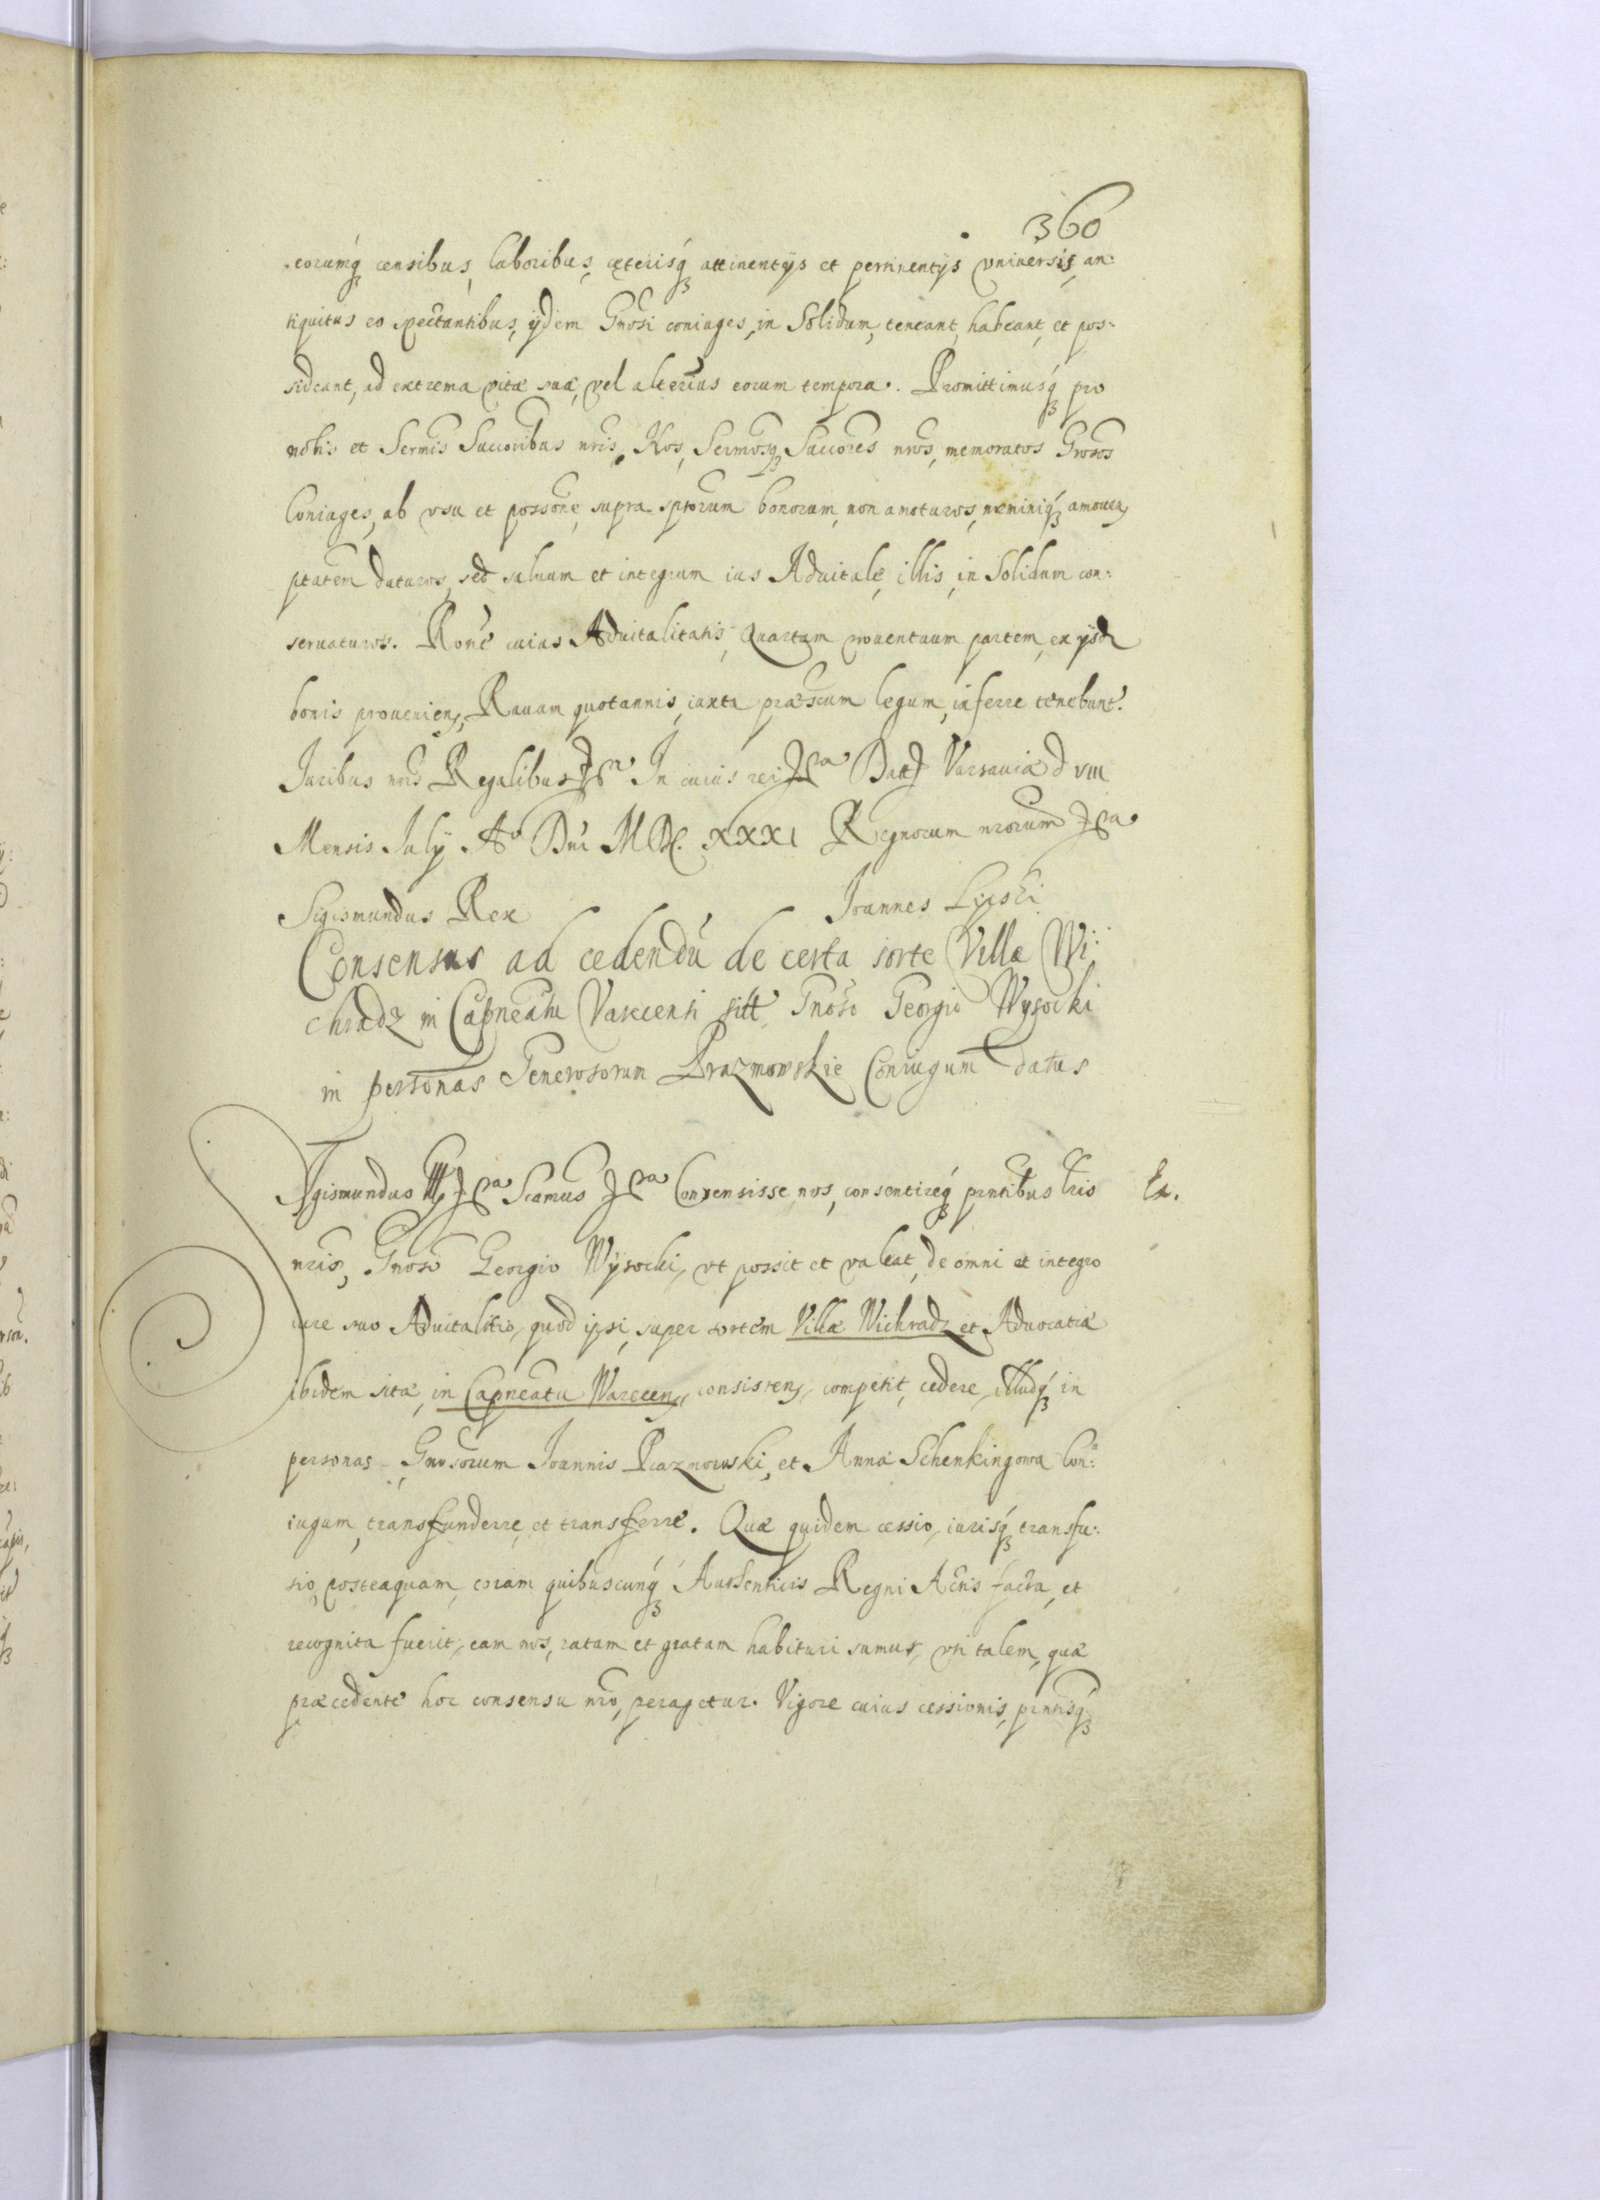 360
eorumq censibus, laboribus, cæterisq attinentijs et pertinentijs vniuersis, an:
tiquitus eo spectantibus, ijdem Gnosi coniuges, in Solidum, teneant, habeant, et pos:
sideant, ad extrema vitæ suæ, vel alterius eorum tempora. Promittimusq pro
nobis et Sermis Succoribus nris, Nos, Sermosq Succores nros, memoratos Gnosos
Coniuges, ab vsu et possone, supra sptorum bonorum, non amoturos, neminiq amouen
ptatem daturos, sed saluum et integrum ius Aduitale, illis, in Solidum con:
seruaturos. Rone cuius Aduitalitatis, Quartam prouentuum partem, ex ijsd
bonis prouenien, Rauam quotannis, iuxta præscum legum, inferre tenebunt.
Juribus nris Regalibus In cuius rei Dat Varsauiæ d VIII
Mensis July Ao Dni MDC. XXXI Regnorum nrorum
Sigismundus Rex Joannes Lipski
Consensus ad cedendu de certa sorte Villæ Wi:
chradz in Capneatu Varecensi sitt Gnoso Georgio Wysocki
in personas Generosorum Prazmowskie Coniugum datus
Sigismundus III Scamus Consensisse nos, consentireq pntibus Lris Ex.
nris, Gnoso Georgio Wysocki, vt possit et valeat, de omni et integro
iure suo Aduitalitio, quod ipsi, super sortem Villæ Wichradz et Aduocatiæ
ibidem sitæ, in Capneatu Warecen, consisten, competit, cedere, illudq in
personas Gnosorum Joannis Prazmowski, et Annæ Schenkingowa Con:
iugum, transfunderre, et transferre. Quæ quidem cessio, iurisq transfu:
sio, posteaquam, coram quibuscunq Authenticis Regni Actis facta, et
recognita fuerit, eam nos, ratam et gratam habituri sumus, vti talem, quæ
præcedente hoc consensu nro, peragetur. Vigore cuius cessionis, pntisq